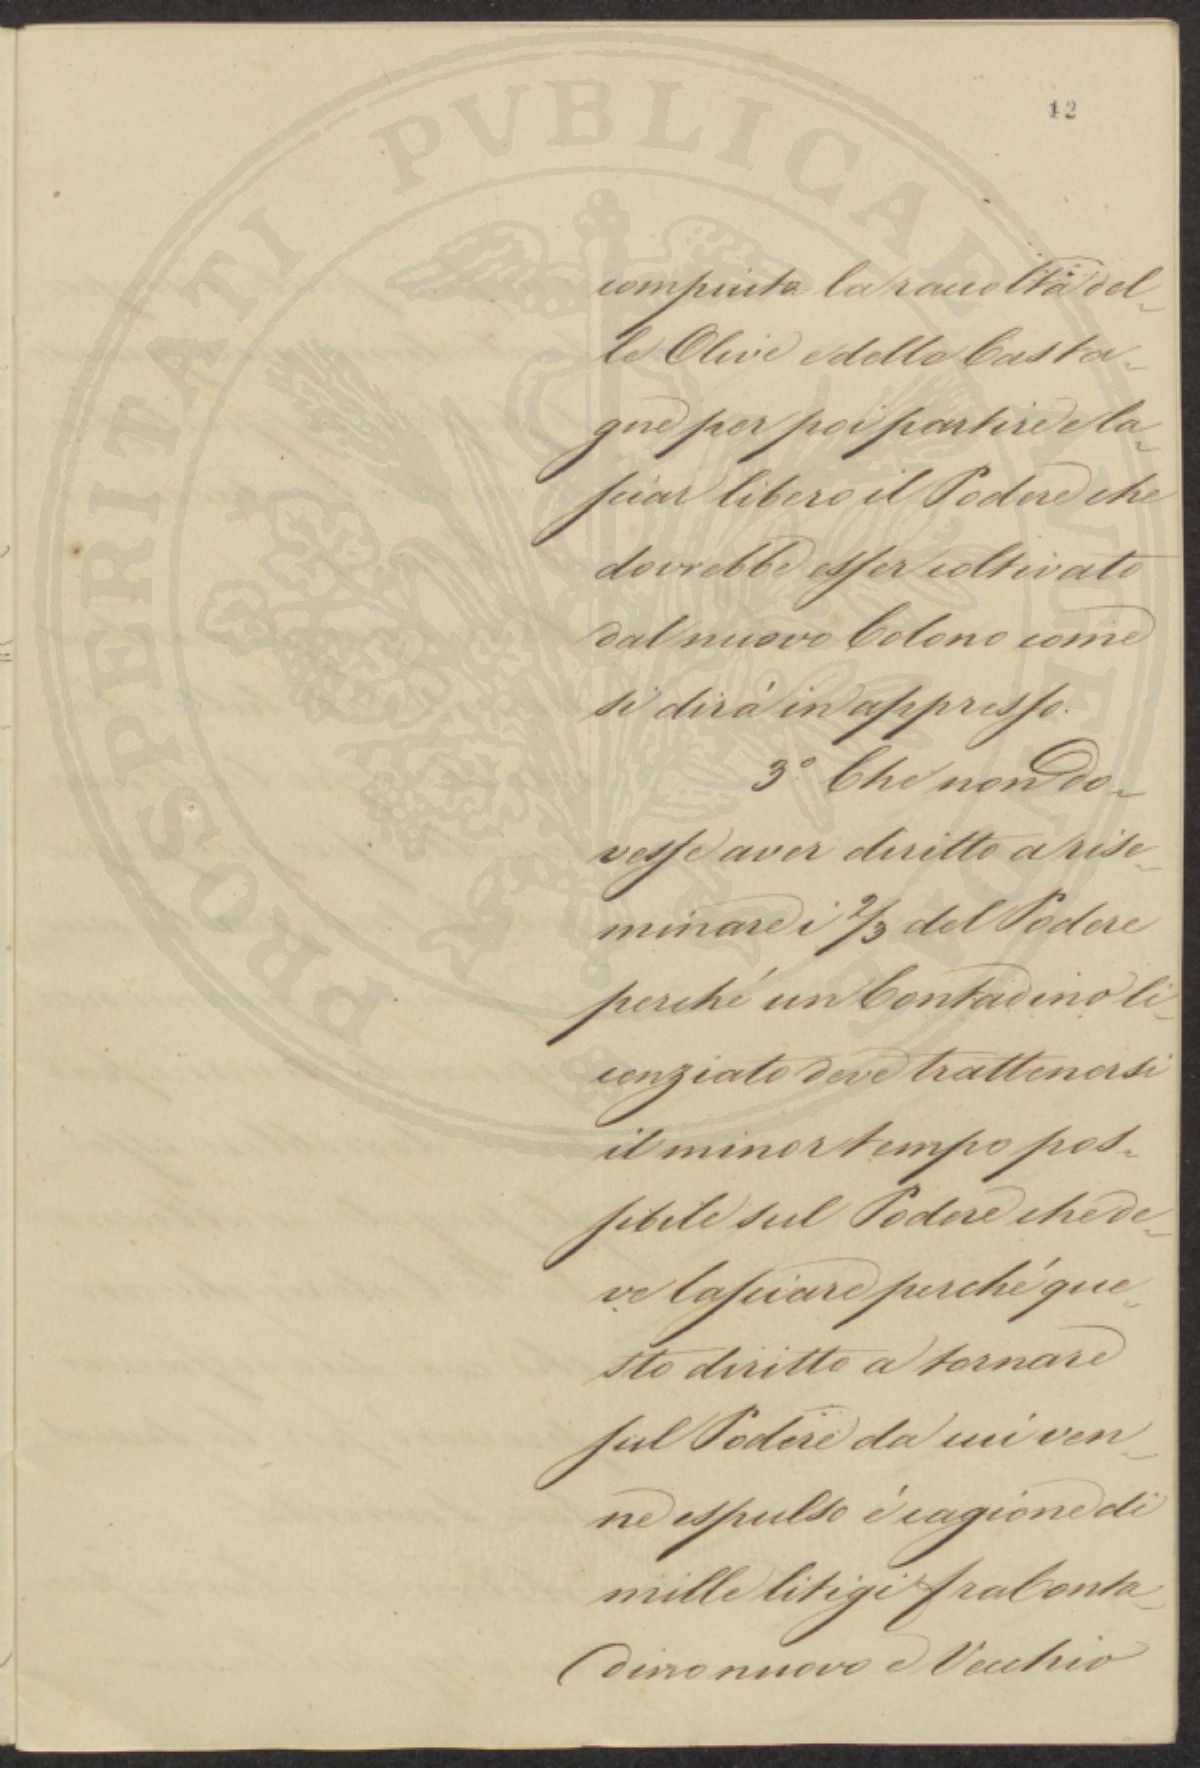 PROSPERITATI PVBLICAE AVGENDAE
12
compiuta la raccolta del-
le Olive e delle Casta-
gne per poi partire e la-
sciar libero il Podere che
dovrebbe esser coltivato
dal nuovo Colono come
si dirà in appresso.
3° Che non do-
vesse aver diritto a rise-
minare i 2/3 del Podere
perché un Contadino li-
cenziato deve trattenersi
il minor tempo pos-
sibile sul Podere che de-
ve lasciare perché que-
sto diritto a tornare
sul Podere da cui ven-
ne espulso è cagione di
mille litigi fra Conta-
dino nuovo e Vecchio